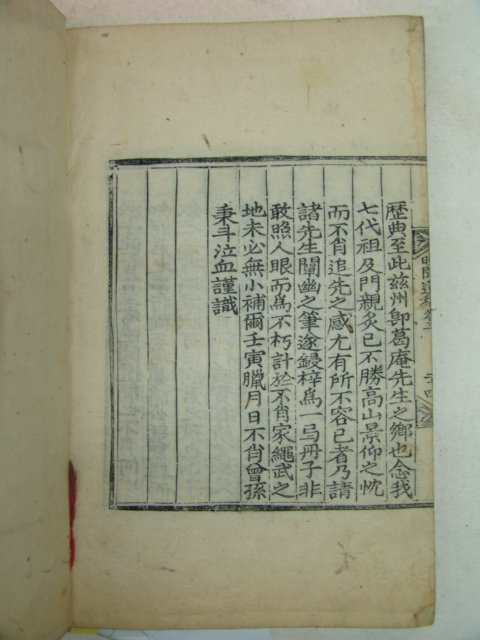 歷典至此玆州卽葛庵先生之鄕也念我
七代祖及門親炙已不勝高山景仰之忱
而不肖追先之感尤有所不容已者乃請
諸先生闡幽之筆遂鋟梓爲一弓冊子非
敢照人眼而爲不朽計於不肖家繩武之
地未必無小補爾壬寅臘月日不肖曾孫
秉斗泣血謹識